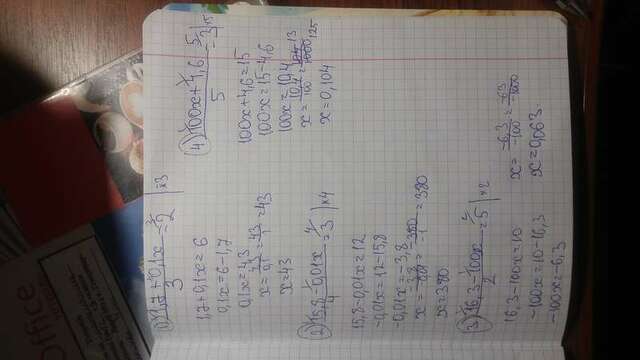 Office
1) 1,7+0,1x / 3 = 2 | ×3
1,7+0,1x=6
0,1x=6-1,7
0,1x=4,3
x=4,3/0,1=43/1=43
x=43
2) 15,8-0,01x / 4 = 3 | ×4
15,8-0,01x=12
-0,01x=12-15,8
-0,01x=-3,8
x=-3,8/-0,01=-380/-1=380
x=380
3) 16,3-100x / 2 = 5 | ×2
16,3-100x=10
-100x=10-16,3
-100x=-6,3
x=-6,3/-100=-63/-1000
x=0,063
4) 100x+4,6 / 5 = 3 | ×5
100x+4,6=15
100x=15-4,6
100x=10,4
x=10,4/100=104/1000 13
125
x=0,104